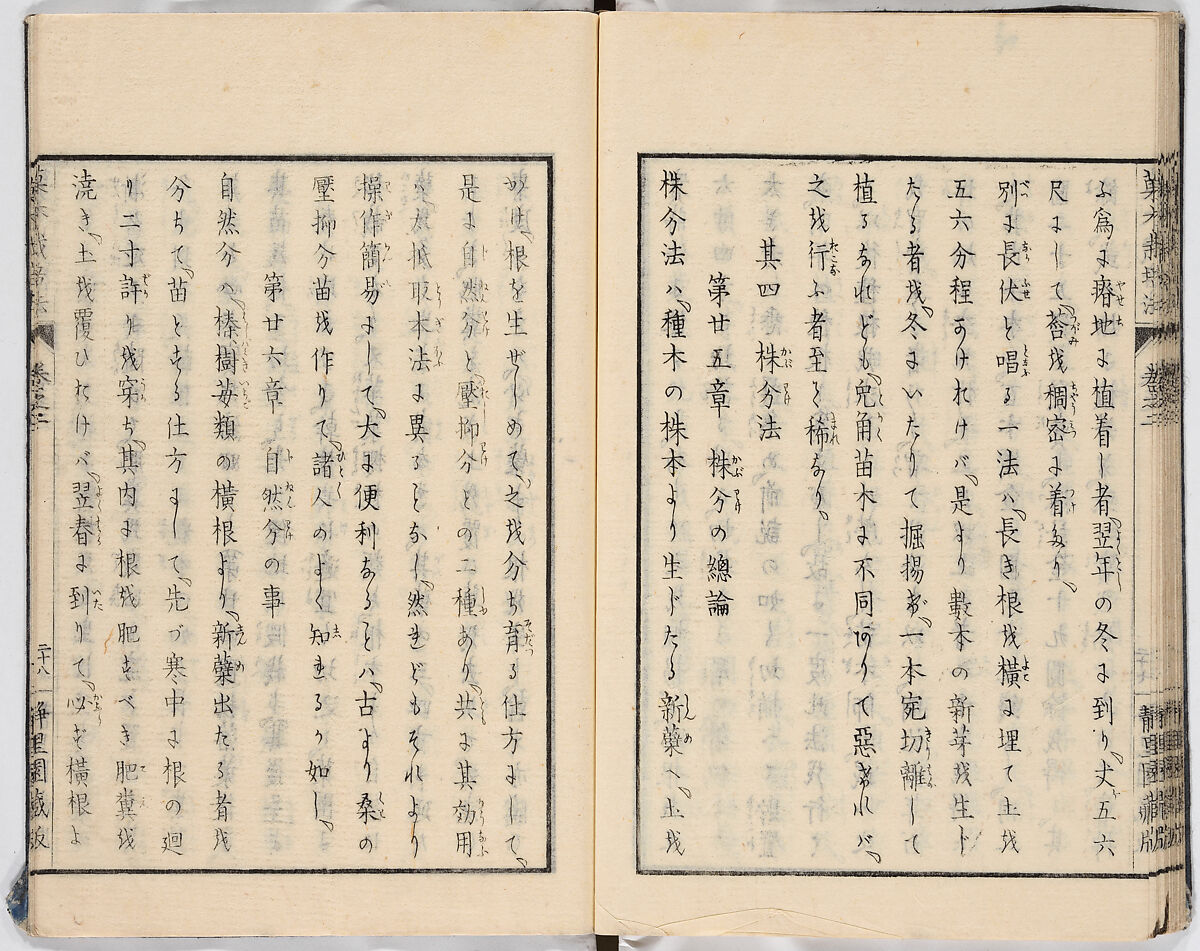 菓木栽培法
卷之二
靜里園藏版
ふ爲に瘠地に植着し者翌年の冬に到り、丈五六
尺にして莟を稠密に着多り、
別に長伏と唱る一法ハ、長き根を橫に埋て土を
五六分程かけれけバ、是より數本の新芽を生ド
たる者を、冬にいたりて掘揚げ、一本宛切離して
植るなれども、兔角苗木に不同ありて惡ければ、
之を行ふ者至て稀なり、
其四番 株分法
第廿五章 株分の總論
株分法ハ、種木の株本より生ドたる新蘖へ、土を
かけ、根を生ぜしめて、之を分ち育る仕方にして、
是に自然分と、壓抑分との二種あり、共に其効用
ハ、大抵取木法に異ることなし、然れどもそれより
操作簡易にして、大に便利なることハ、古より桑の
壓抑分苗を作りて、諸人のよく知れるが如し、
第廿六章 自然分の事
自然分ハ、榛樹苺類の橫根より、新蘖出たる者を
分ちて、苗とする仕方にして、先づ寒中に根の廻
り二寸許りを穿ち、其内に根を肥すべき肥糞を
澆き、土を覆ひたけバ、翌春に到りて、必ず橫根よ
菓木栽培法
卷之二
二十八
靜里園藏版